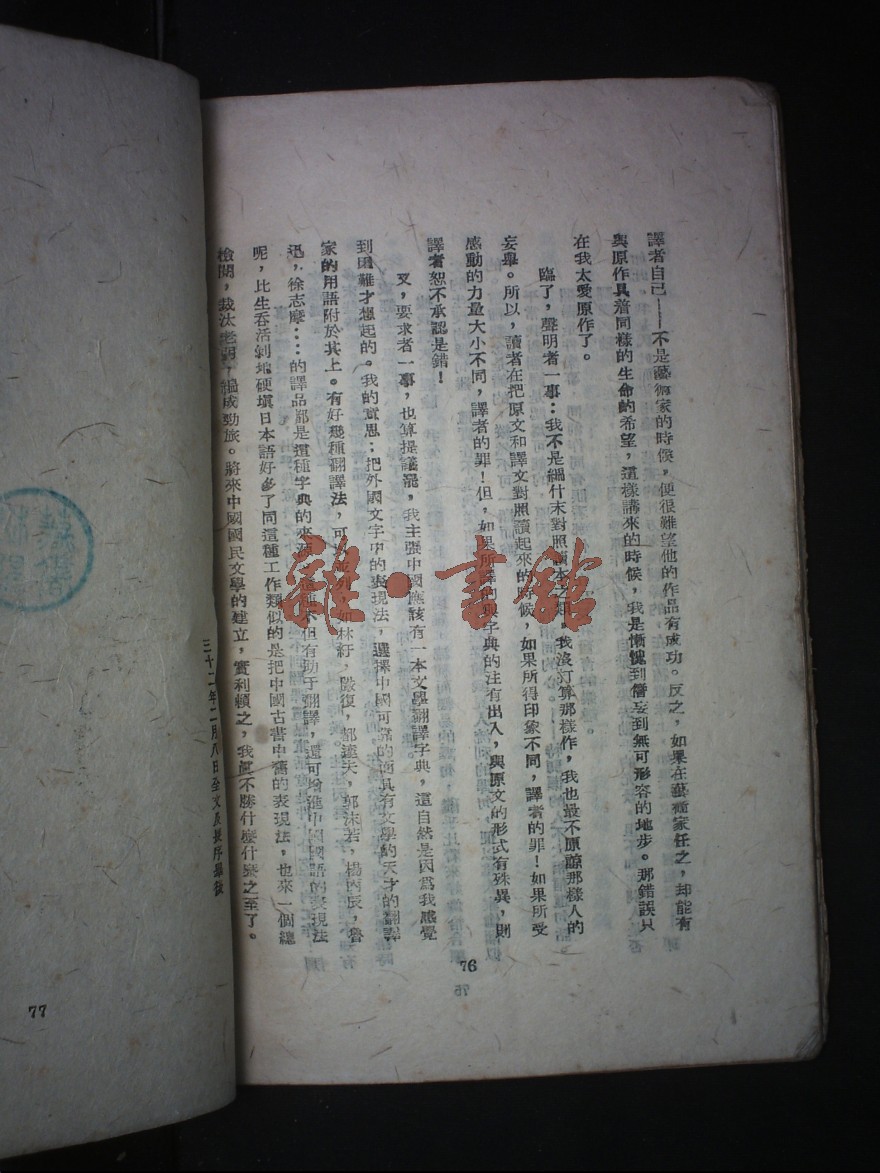 譯者自己——不是藝術家的時候，便很難望他的作品有成功。反之，如果在藝術家任之，却能有
與原作具着同樣的生命的希望，這樣講來的時候，我是慚愧到僭妄到無可形容的地步。那錯誤只
在我太愛原作了。
臨了，聲明者一事：我不是編什末對照讀本之類，我沒打算那樣作，我也最不原諒那樣人的
妄舉。所以，讀者在把原文和譯文對照讀起來的時候，如果所得印象不同，譯者的罪！如果所受
感動的力量大小不同，譯者的罪！但，如果所譯的與字典的注有出入，與原文的形式有殊異，則
譯者恕不承認是錯！
又，要求者一事，也算提議罷，我主張中國應該有一本文學翻譯字典，這自然是因為我感覺
到困難才想起的。我的意思；把外國文字中的表現法，選擇中國可靠的而具有文學的天才的翻譯
家的用語附於其上。有好幾種翻譯法，可並列，如林紓，嚴復，郁達夫，郭沫若，楊丙辰，魯
迅，徐志摩……的譯品都是這種字典的來源。這種不但有助于翻譯，還可增進中國國語的表現法
呢，比生吞活剝地硬填日本語好多了同這種工作類似的是把中國古書中舊的表現法，也來一個總
檢閱，裁汰老弱，編成勁旅。將來中國國民文學的建立，實利賴之，我真不勝什麼什麼之至了。
三十二年二月八日全文及長序畢後
76
75
77
雜·書館